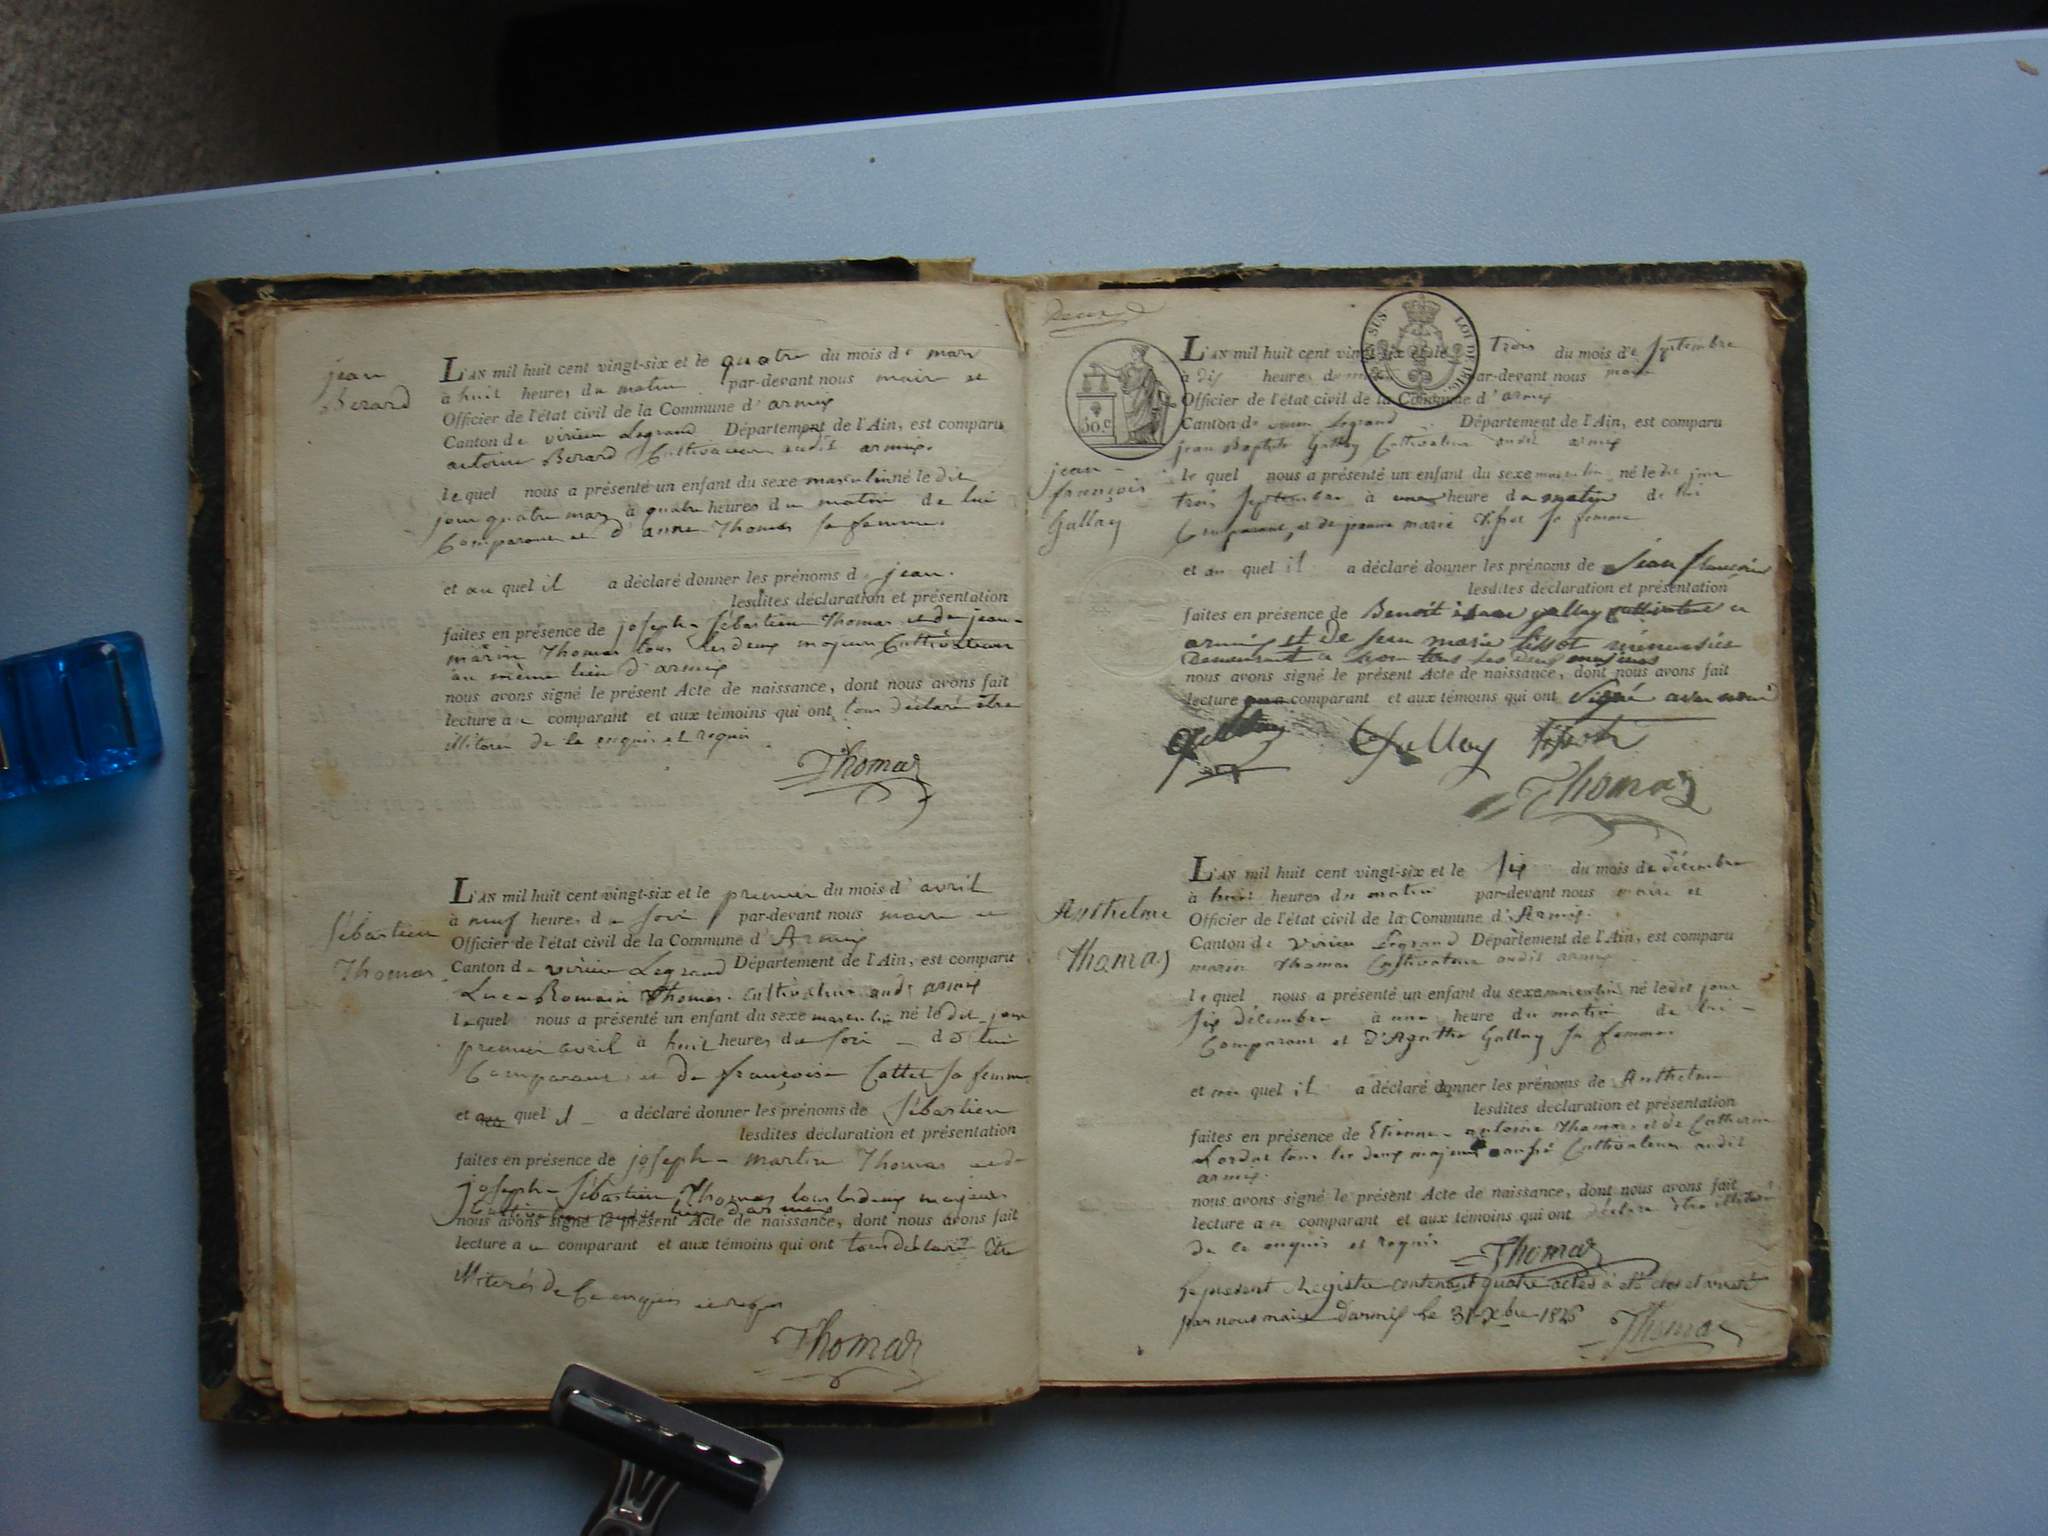 jean
Berard
L'AN mil huit cent vingt-six et le quatre du mois de mars
à huit heures du matin par-devant nous maire et
Officier de l'état civil de la Commune d'armix
Canton de virieu Legrand Département de l'Ain, est comparu
antoine Berard Cultivateur audit armix.
lequel nous a présenté un enfant du sexe masculin né ledit
jour quatre mars à quatre heures du matin de lui
Comparant et d'anne Thomas sa femme.
et au quel il a déclaré donner les prénoms de jean.
lesdites déclaration et présentation
faites en présence de joseph-Sébastien Thomas et de jean-
marin Thomas tous les deux majeurs Cultivateurs
au même lieu d'armix
nous avons signé le présent Acte de naissance, dont nous avons fait
lecture au comparant et aux témoins qui ont tous déclaré être
illitérés de ce enquis et requis
Thomas
Sébastien
Thomas
L'AN mil huit cent vingt-six et le premier du mois d'avril
à neuf heures du soir par-devant nous maire et
Officier de l'état civil de la Commune d'Armix
Canton de virieu Legrand Département de l'Ain, est comparu
Luc-Romain Thomas cultivateur audit armix
lequel nous a présenté un enfant du sexe masculin né ledit jour
premier avril à huit heures du soir de lui
Comparant et de françoise Cattet sa femme
et au quel il a déclaré donner les prénoms de Sébastien
lesdites déclaration et présentation
faites en présence de joseph-martin Thomas et de
joseph-Sébastien Thomas tous les deux majeurs
Cultivateurs audit lieu d'armix
nous avons signé le présent Acte de naissance, dont nous avons fait
lecture au comparant et aux témoins qui ont tous déclaré être
illiterés de Ce enquis et requis
Thomas
30.C
LOI DE 1816.
jean-
françois
Gallay
L'AN mil huit cent vingt-six et le trois du mois de Septembre
à dix heures du matin par-devant nous maire
Officier de l'état civil de la Commune d'armix
Canton de virieu Legrand Département de l'Ain, est comparu
jean Baptiste Gallay Cultivateur audit armix
lequel nous a présenté un enfant du sexe masculin né ledit jour
trois Septembre à une heure du matin de lui
Comparant, et de jeanne marie tissot sa femme
et au quel il a déclaré donner les prénoms de jean françois
lesdites déclaration et présentation
faites en présence de Benoit gallay cultivateur a
armix et de jean marie tissot
demeurant a tous les deux majeurs
nous avons signé le présent Acte de naissance, dont nous avons fait
lecture au comparant et aux témoins qui ont signé avec nous
gallay Gallay tissot
Thomas
Anthelme
Thomas
L'AN mil huit cent vingt-six et le six du mois de décembre
à huit heures du matin par-devant nous maire et
Officier de l'état civil de la Commune d'Armix.
Canton de virieu Legrand Département de l'Ain, est comparu
marin Thomas Cultivateur audit armix
lequel nous a présenté un enfant du sexe masculin né ledit jour
six décembre à une heure du matin de lui
Comparant et d'Agathe Gallay sa femme.
et au quel il a déclaré donner les prénoms de Anthelme
lesdites déclaration et présentation
faites en présence de Etienne-antoine Thomas et de Catherin
Lordat tous les deux majeurs aussi Cultivateurs audit
armix.
nous avons signé le présent Acte de naissance, dont nous avons fait
lecture au comparant et aux témoins qui ont déclaré être illitérés
de ce enquis et requis
Thomas
Le present Registre contenant quatre actes à eté clos et arreté
par nous maire d'armix le 31 Xbre 1826
Thomas